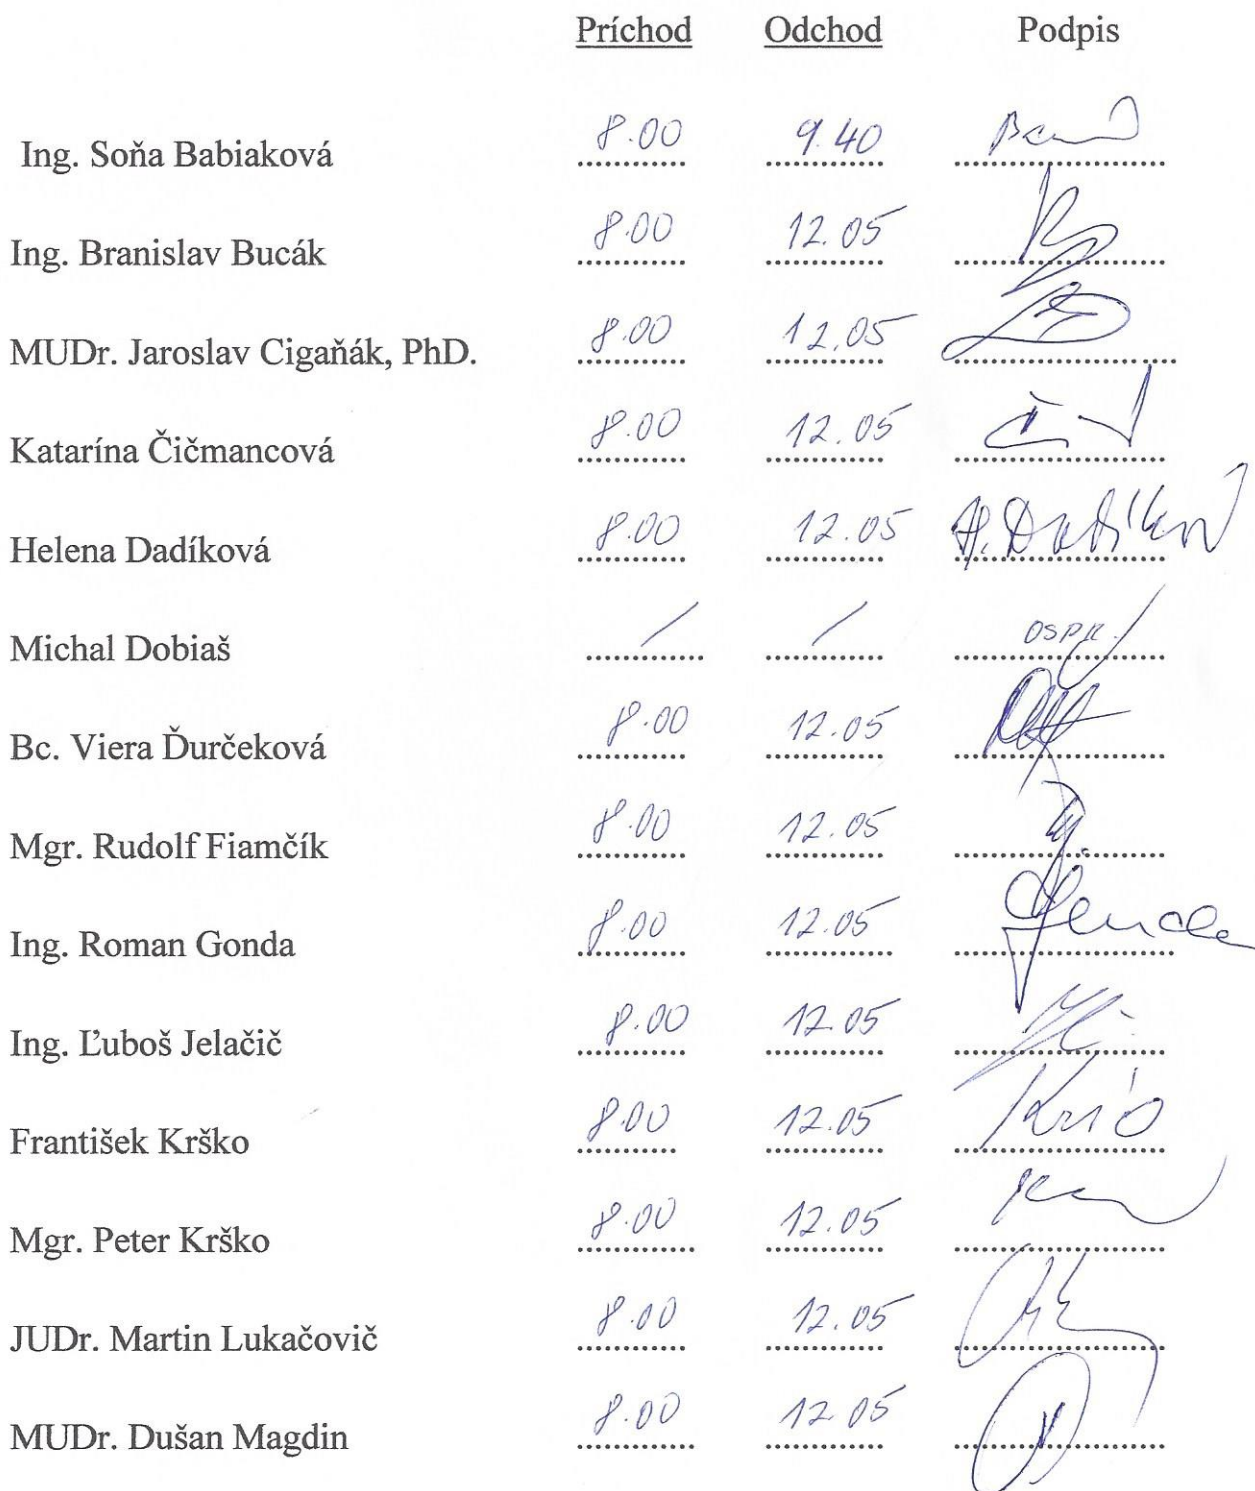 Príchod Odchod Podpis
Ing. Soňa Babiaková 8.00 9.40
Ing. Branislav Bucák 8.00 12.05
MUDr. Jaroslav Cigaňák, PhD. 8.00 12.05
Katarína Čičmancová 8.00 12.05
Helena Dadíková 8.00 12.05 H. Dadíková
Michal Dobiaš / / OSPR.
Bc. Viera Ďurčeková 8.00 12.05
Mgr. Rudolf Fiamčík 8.00 12.05
Ing. Roman Gonda 8.00 12.05
Ing. Ľuboš Jelačič 8.00 12.05
František Krško 8.00 12.05
Mgr. Peter Krško 8.00 12.05
JUDr. Martin Lukačovič 8.00 12.05
MUDr. Dušan Magdin 8.00 12.05